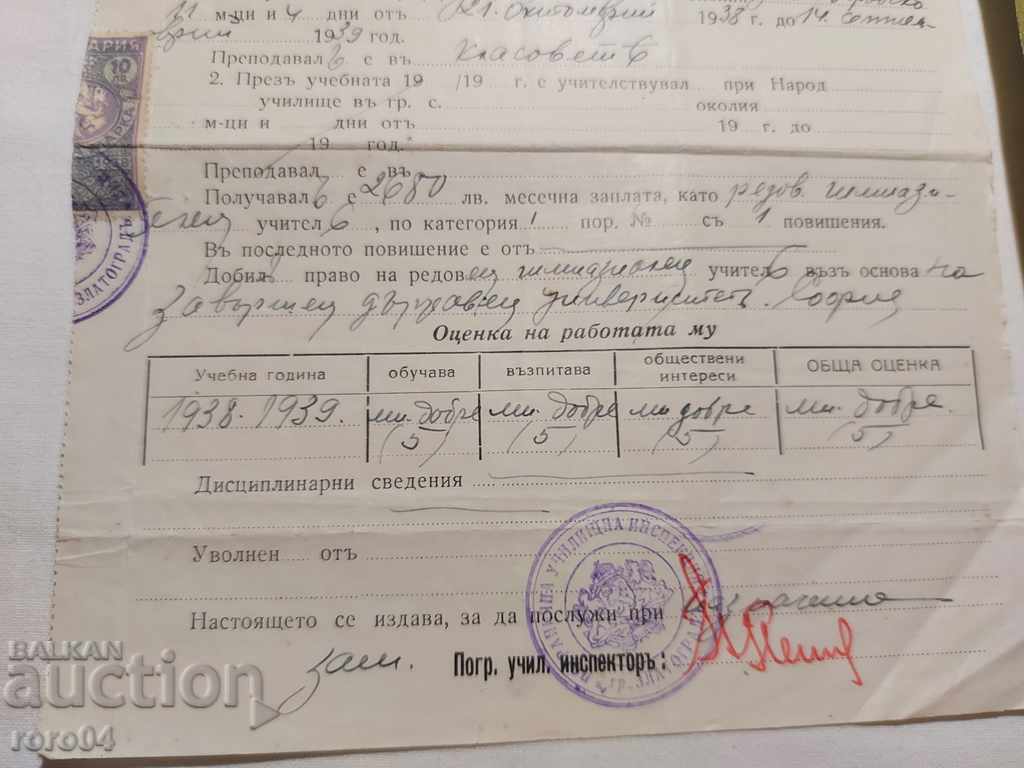 11 м-ци и 4 дни отъ 21. октомврий 1938 г. до 14. септем-
врий 1939 год.
Преподавалъ е въ
2. Презъ учебната 19 /19 г. е учителствувал при Народ
училище въ гр. с. околия
м-ци и дни отъ 19 г. до
19 год.
Преподавал е въ
Получавалъ е 2680 лв. месечна заплата, като редов. гимнази-
учителъ, по категория 1 пор. № съ 1 повишения.
Въ последното повишение е отъ
Добилъ право на редовен гимназиален учителъ възъ основа на
завършен държавен университетъ. София
Оценка на работата му
Учебна година обучава възпитава обществени интереси ОБЩА ОЦЕНКА
1938-1939. мн. добре мн. добре мн. добре мн. добре.
(5) (5) (5) (5)
Дисциплинарни сведения
Уволнен отъ
Настоящето се издава, за да послужи при
зам. Погр. учил. инспекторъ:
ПОГРАНИЧНА УЧИЛИЩНА ИНСПЕКЦИЯ гр. ЗЛАТОГРАДЪ
ЗЛАТОГРАДЪ
10 ЛВ.
BALKAN
auction
roro04